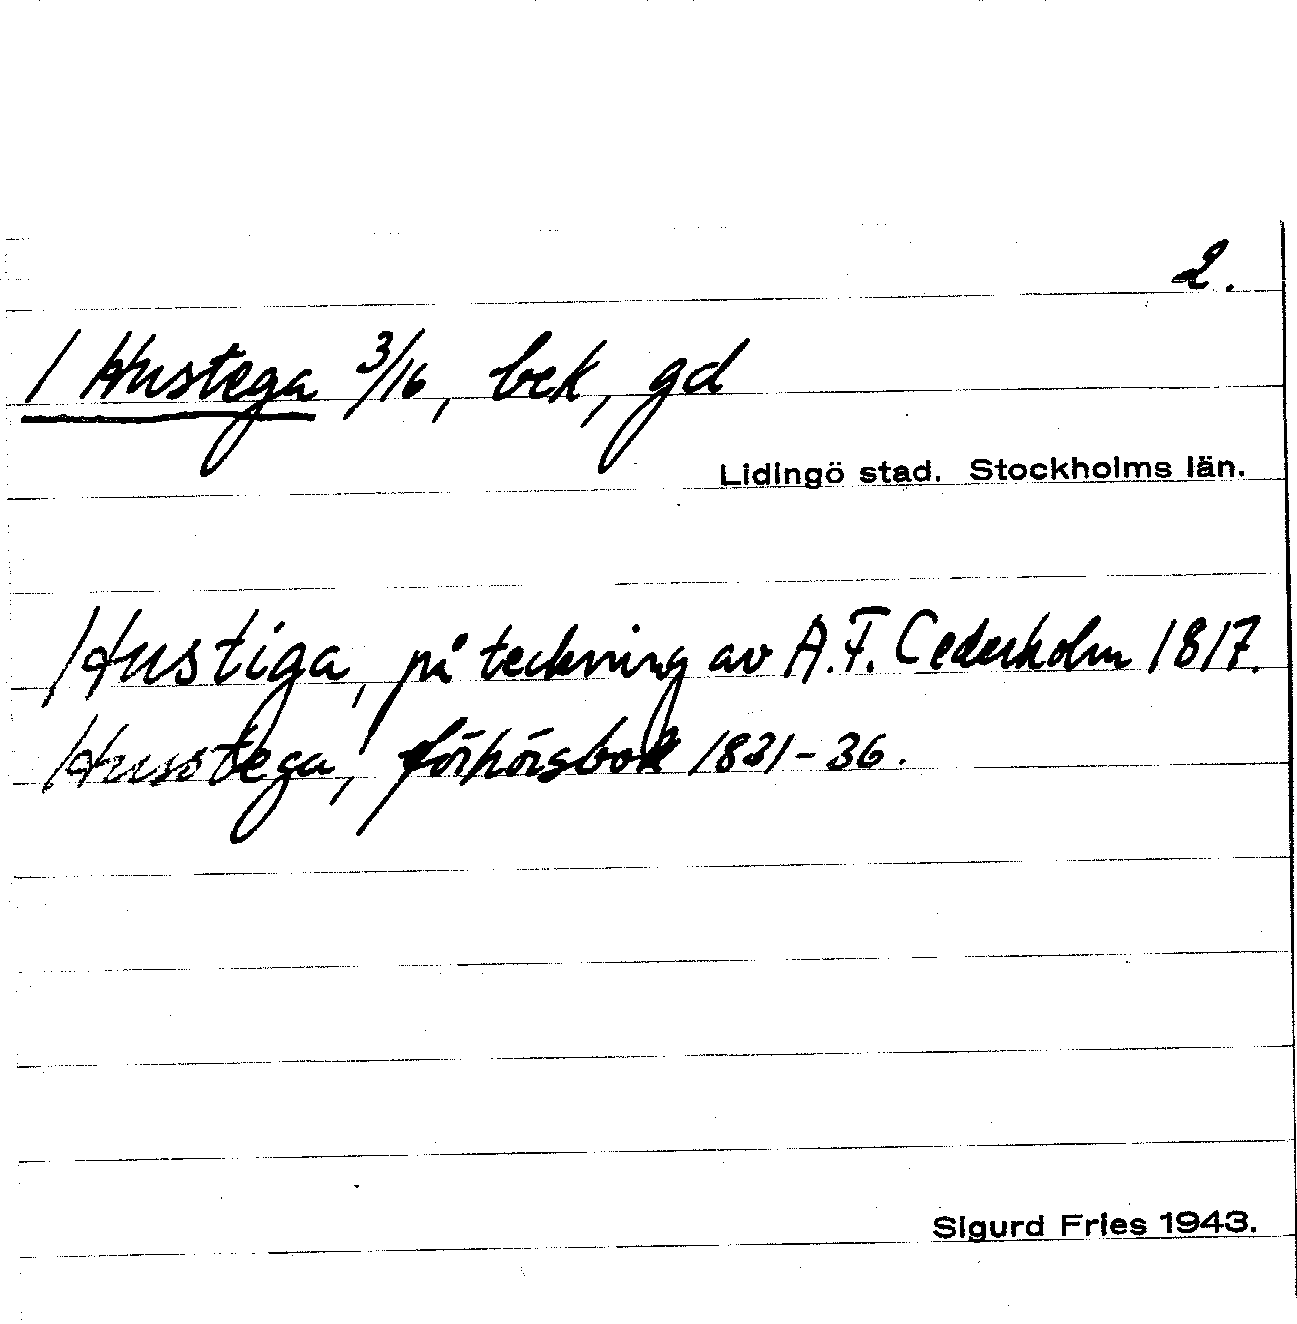 2.
1 Hustega 3/16, bek, gd
Lidingö stad. Stockholms län.
Hustiga, på teckning av A.F. Cederholm 1817.
Hustega, förhörsbok 1831-36.
Sigurd Fries 1943.